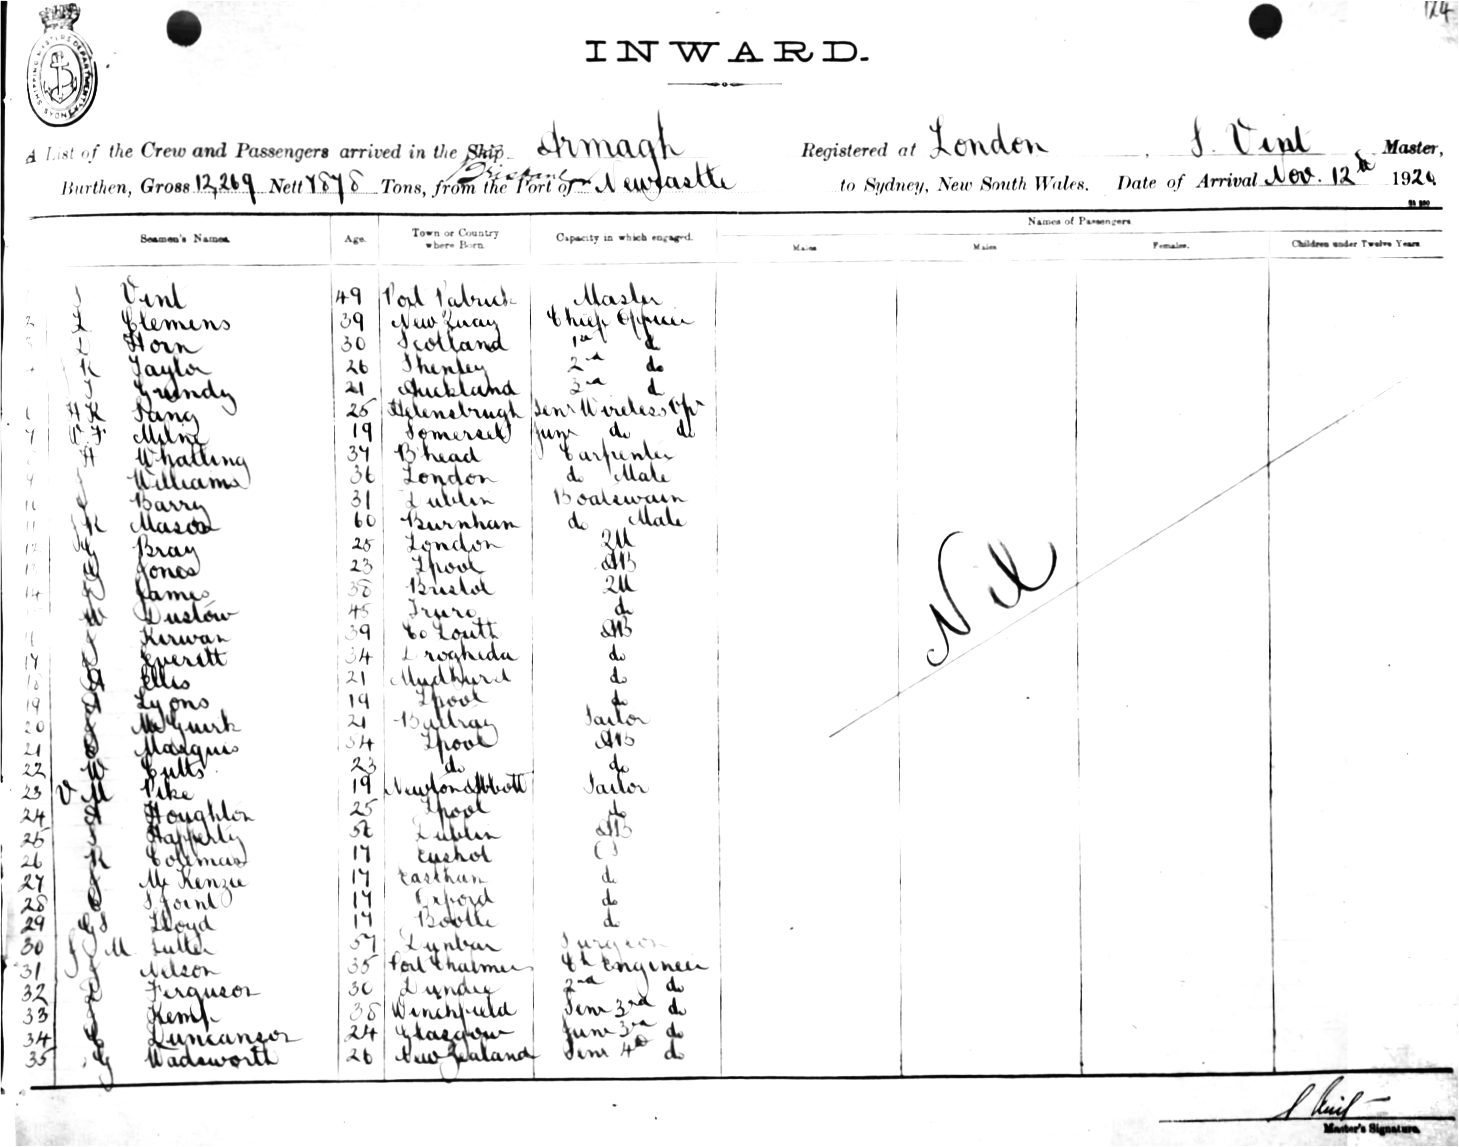 124
SHIPPING MASTERS DEPARTMENT SYDNEY
INWARD.
A List of the Crew and Passengers arrived in the Ship Armagh Registered at London, S. Vint Master,
Brisbane
Burthen, Gross 12,269 Nett 7878 Tons, from the Port of Newcastle to Sydney, New South Wales. Date of Arrival Nov. 12th 192
Seamen's Names. Age. Town or Country where Born. Capacity in which engaged. Names of Passengers
Males Males Females. Children under Twelve Years
Vint 49 Port Patrick Master
2 Clemens 39 New Quay Chief Officer
Horn 30 Scotland 1st do
K Taylor 26 Shenley 2nd do
Grundy 21 Auckland 3rd d
H K Sang 25 Helensbrugh Senr Wireless Opr
7 F Milne 19 Somerset Junr do do
H Whatling 37 B'head Carpenter
9 Williams 36 London do Mate
Barry 31 Dublin Boatswain
11 K Mason 60 Burnham do Mate
12 Bray 25 London QM
Jones 23 L'pool AB
14 James 38 Bristol QM
W Dustow 45 Truro do
Kirwan 39 Co Louth AB
17 Everett 34 Drogheda do
18 Ellis 21 Mudhurst do
19 Lyons 19 L'pool do
20 McGuirk 21 Baltray Sailor
21 Marquis 54 L'pool AB
22 W Cutts 23 do do
23 V M Pike 19 Newton Abbott Sailor
24 Houghton 25 L'pool do
25 Hafferty 56 Dublin AB
26 K Coleman 17
27 McKenzie 17 Eastham do
28 17 Oxford do
29 Lloyd 17 Bootle do
30 M 57 Dunbar Surgeon
31 Nelson 35 Port Chalmers Ch Engineer
32 Ferguson 30 Dundee 2nd do
33 Kemp 38 Winchfield Senr 3rd do
34 Duncanson 24 Glasgow Junr 3rd do
35 Wadsworth 26 New Zealand Senr 4th do
Nil
S Vint
Master's Signature.